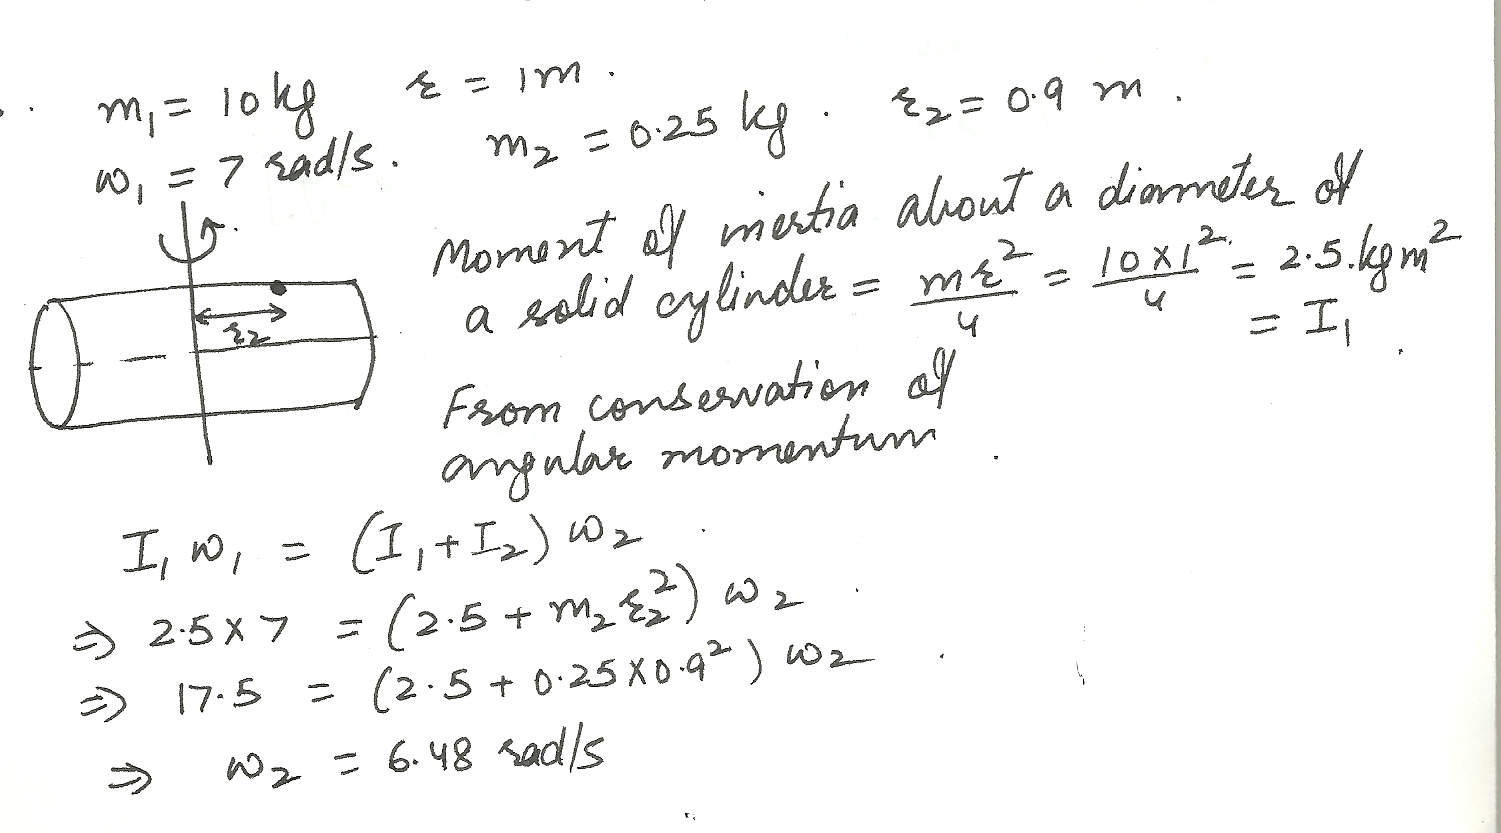 m₁ = 10 kg r = 1m.
ω₁ = 7 rad/s. m₂ = 0.25 kg. r₂ = 0.9 m.
Moment of inertia about a diammeter of
a solid cylinder = mr²/4 = 10×1²/4 = 2.5.kgm²
= I₁
r₂
From conservation of
angular momentum.
I₁ ω₁ = (I₁ + I₂) ω₂
⇒ 2.5×7 = (2.5 + m₂ r₂²) ω₂
⇒ 17.5 = (2.5 + 0.25×0.9²) ω₂
⇒ ω₂ = 6.48 rad/s